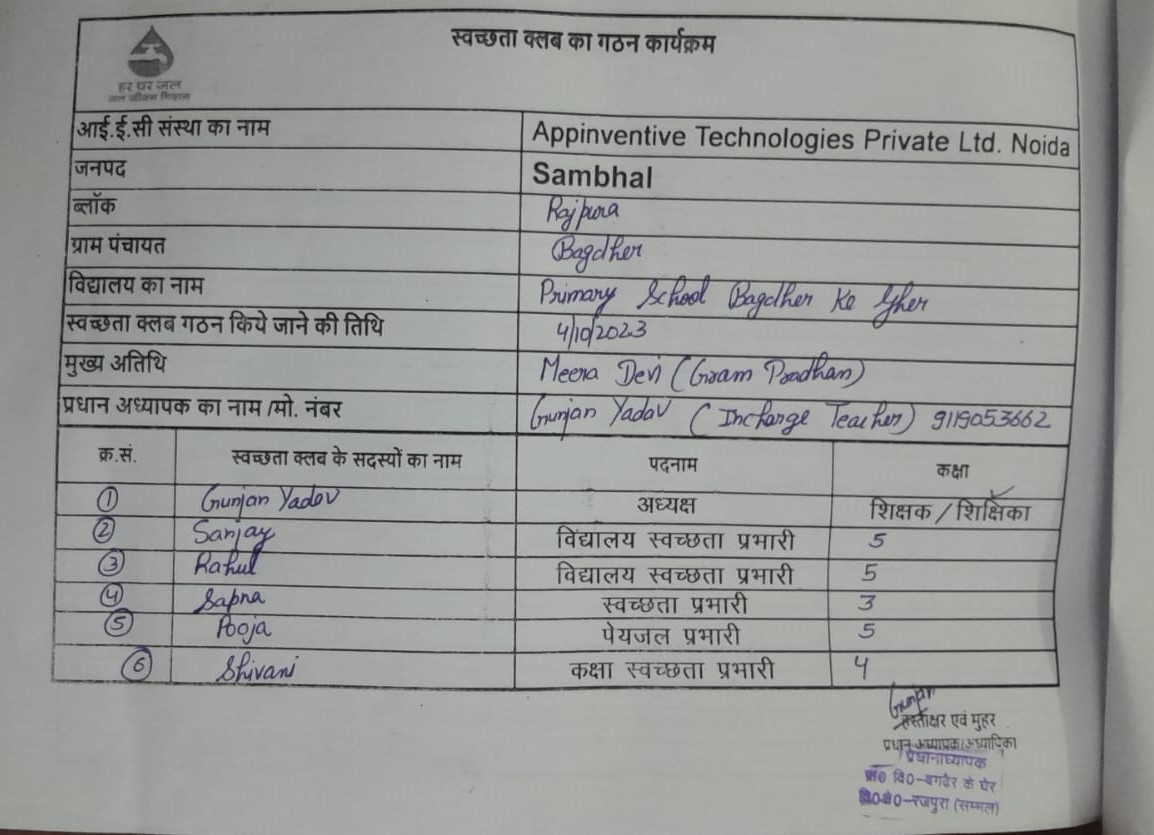 स्वच्छता क्लब का गठन कार्यक्रम
हर घर जल
जल जीवन मिशन
आई.ई.सी संस्था का नाम Appinventive Technologies Private Ltd. Noida
जनपद Sambhal
ब्लॉक Rajpura
ग्राम पंचायत Bagdher
विद्यालय का नाम Primary School Bagdher Ke Gher
स्वच्छता क्लब गठन किये जाने की तिथि 4/10/2023
मुख्य अतिथि Meera Devi (Gram Pradhan)
प्रधान अध्यापक का नाम /मो. नंबर Gunjan Yadav (Incharge Teacher) 9119053662
क्र.सं. स्वच्छता क्लब के सदस्यों का नाम पदनाम कक्षा
1 Gunjan Yadav अध्यक्ष शिक्षक / शिक्षिका
2 Sanjay विद्यालय स्वच्छता प्रभारी 5
3 Rahul विद्यालय स्वच्छता प्रभारी 5
4 Sapna स्वच्छता प्रभारी 3
5 Pooja पेयजल प्रभारी 5
6 Shivani कक्षा स्वच्छता प्रभारी 4
Gunjan
हस्ताक्षर एवं मुहर
प्रधान अध्यापक/अध्यापिका
प्रधानाध्यापक
वि0-बगढेर के घेर
रजपुरा (सम्भल)